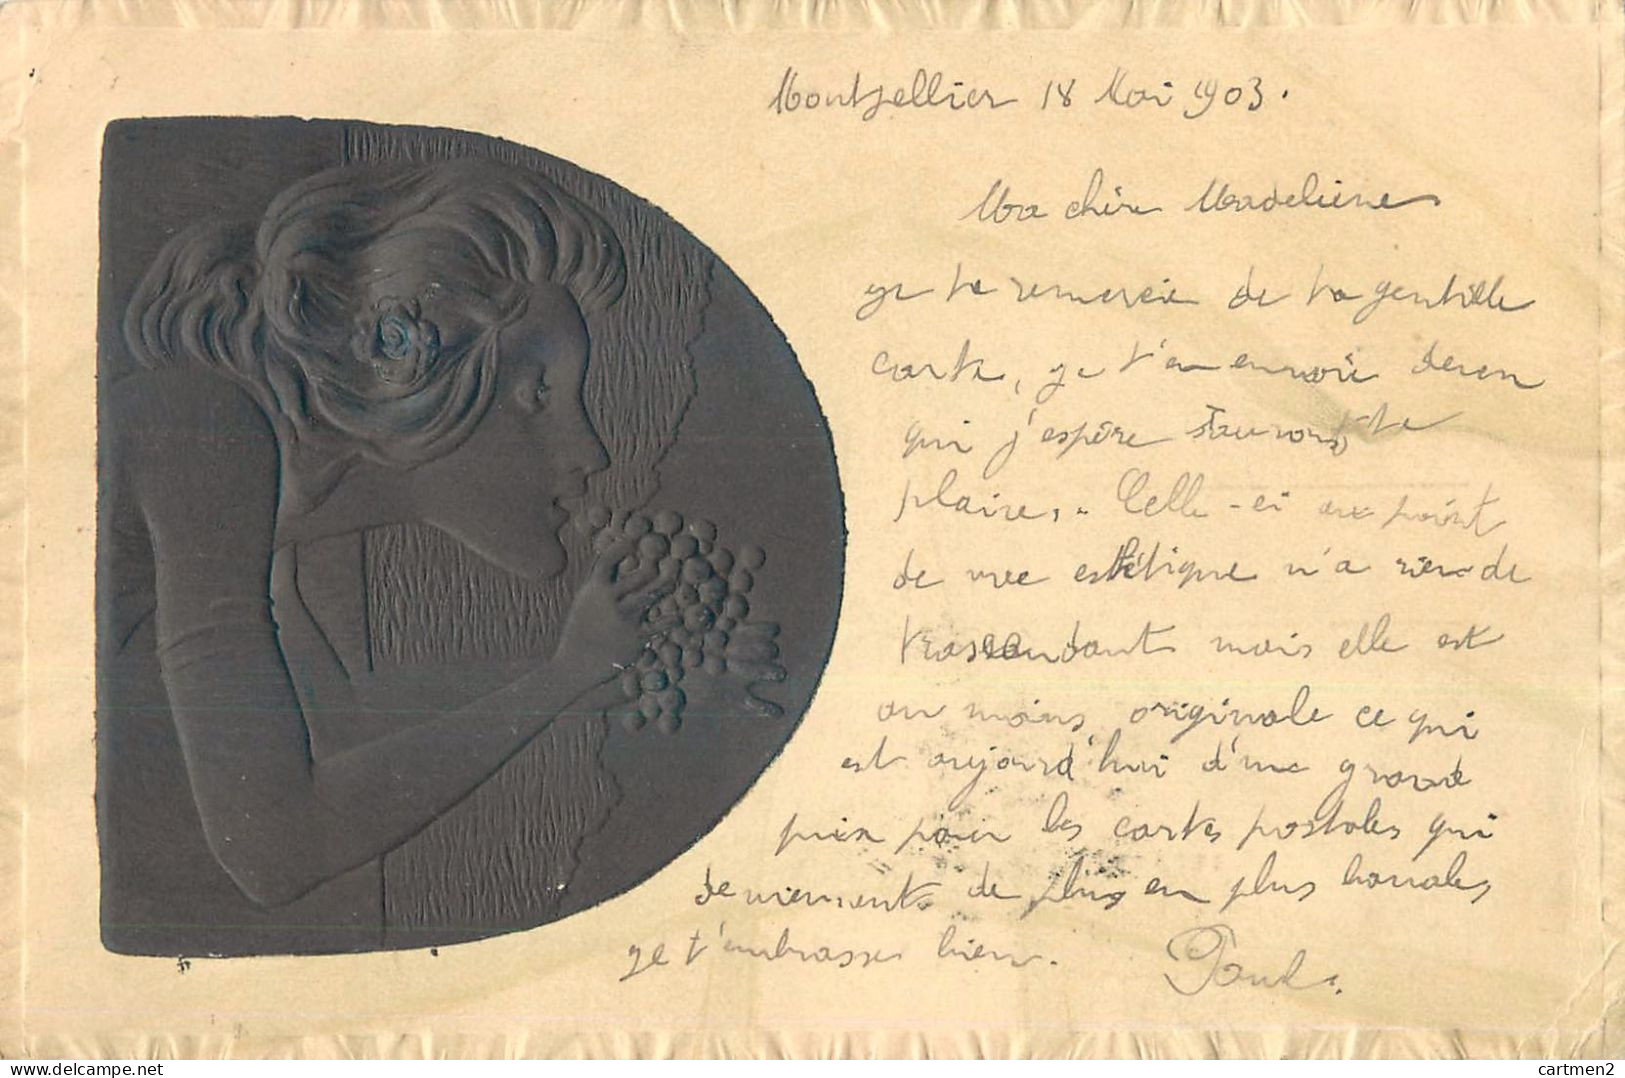 Montpellier 18 Mai 1903.
Ma chère Madeleine
je te remercie de ta gentille
carte, je t'en envoie
qui j'espère te
plaire. Celle-ci au point
de vue esthétique n'a rien de
trascendant mais elle est
au moins originale ce qui
est aujourd'hui d'un grand
prix pour les cartes postales qui
deviennent de plus en plus banales
je t'embrasse bien.
Paul.
www.delcampe.net
cartmen2